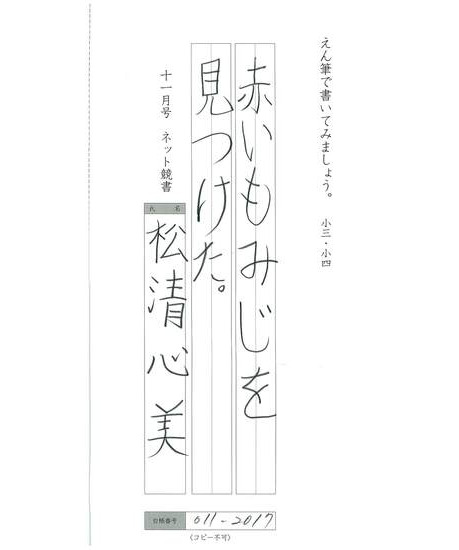 えん筆で書いてみましょう。 小三・小四
赤いもみじを
見つけた。
十一月号 ネット競書
氏名
松清心美
出格番号 011-2017
(コピー不可)